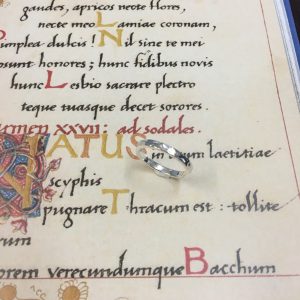 gaudes, apricos necte flores,
necte meo Lamiae coronam,
Pimplea dulcis! Nil sine te mei
sunt honores; hunc fidibus novis
hunc Lesbio sacrare plectro
teque tuasque decet sorores.
men XXVII: ad sodales.
NATUS in usum laetitiae
scyphis
pugnare Thracum est: tollite
rum
orem verecundumque Bacchum